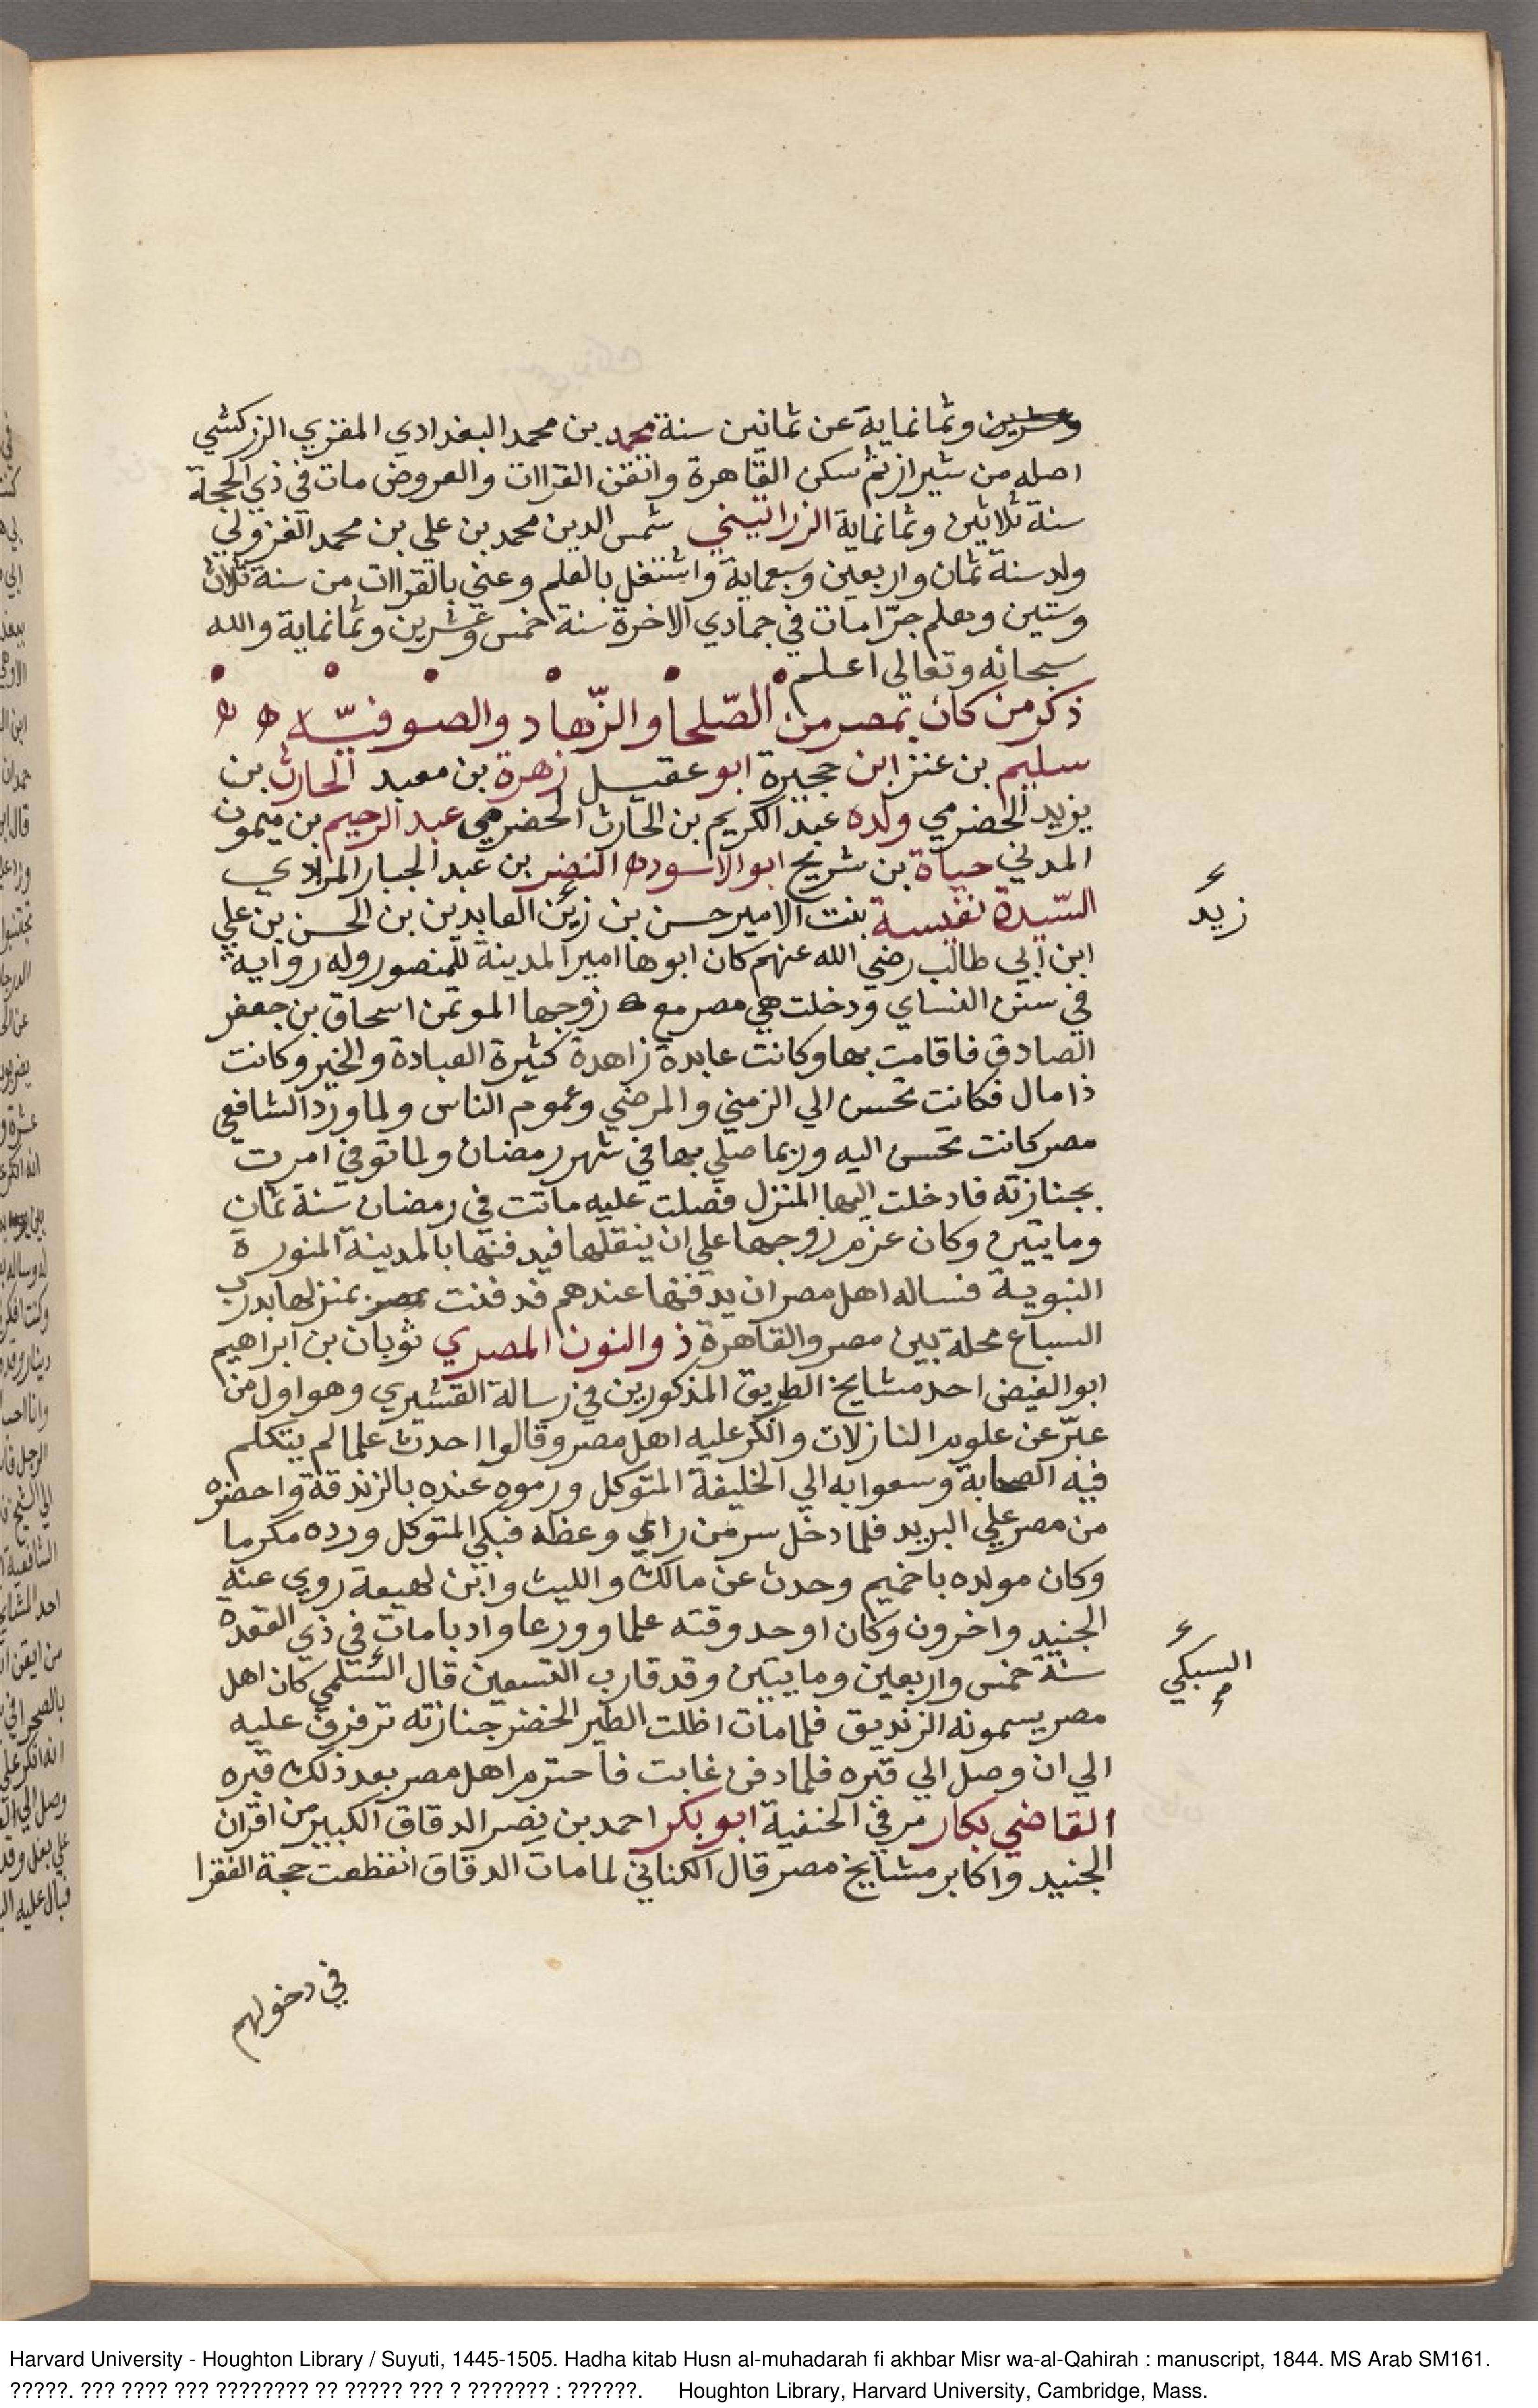 وعشرين وثمانماية عن ثمانين سنة محمد بن محمد البغدادي المقري الزركشي
اصله من شيراز ثم سكن القاهرة واتقن القراات والعروض مات في ذي الحجة
سنة ثلاثين وثمانماية الزراتيني شمس الدين محمد بن علي بن محمد الغزولي
ولد سنة ثمان واربعين وسبعماية واشتغل بالعلم وعني بالقراات من سنة ثلاث
وستين وهلم جرّا مات في جمادي الاخرة سنة خمس وعشرين وثمانماية والله
سبحانه وتعالى اعلم
ذكر من كان بمصر من الصّلحا والزّهاد والصوفيّه ه ه
سليم بن عنز ابن حجيرة ابو عقيل زهرة بن معبد الحارث بن
يزيد الحضرمي ولده عبد الكريم بن الحارث الحضرمي عبد الرحيم بن ميمون
المدني حياة بن شريح ابو الاسود ه النضر بن عبد الجبار المرادي
السّيدة نفيسة بنت الامير حسن بن زين العابدين بن الحسن بن علي
ابن ابي طالب رضي الله عنهم كان ابوها امير المدينة للمنصور وله رواية
في سنن النساي ودخلت هي مصر مع زوجها الموتمن اسحاق بن جعفر
الصادق فاقامت بها وكانت عابدة زاهدة كثيرة العبادة والخير وكانت
ذا مال فكانت تحسن الي الزمني والمرضي وعموم الناس ولما ورد الشافعي
مصر كانت تحسن اليه وربما صلي بها في شهر رمضان ولما توفي امرت
بجنازته فادخلت اليها المنزل فصلت عليه ماتت في رمضان سنة ثمان
ومايتين وكان عزم زوجها علي ان ينقلها فيدفنها بالمدينة المنورة
النبوية فساله اهل مصر ان يدفنها عندهم فدفنت بمصر بمنزلها بدرب
السباع محلة بين مصر والقاهرة ذو النون المصري ثوبان بن ابراهيم
ابو الفيض احد مشايخ الطريق المذكورين في رسالة القشيري وهو اول من
عبّر عن علوم النازلات وانكر عليه اهل مصر وقالوا احدث علما لم يتكلم
فيه الصحابة وسعوا به الي الخليفة المتوكل ورموه عنده بالزندقة واحضره
من مصر علي البريد فلما دخل سر من راي وعظه فبكي المتوكل ورده مكرما
وكان مولده باخميم وحدث عن مالك والليث وابن لهيعة روي عنه
الجنيد واخرون وكان اوحد وقته علما وورعا وادبا مات في ذي القعدة
سنة خمس واربعين ومايتين وقد قارب التسعين قال السلمي كان اهل
مصر يسمونه الزنديق فلما مات اظلت الطير الخضر جنازته ترفرف عليه
الي ان وصل الي قبره فلما دفن غابت فاحترم اهل مصر بعد ذلك قبره
القاضي بكار مر في الحنفية ابو بكر احمد بن نصر الدقاق الكبير من اقران
الجنيد واكابر مشايخ مصر قال الكناني لما مات الدقاق انقطعت حجة الفقرا
في دخولهم
زيد
السبكي
Harvard University - Houghton Library / Suyuti, 1445-1505. Hadha kitab Husn al-muhadarah fi akhbar Misr wa-al-Qahirah : manuscript, 1844. MS Arab SM161.
?????. ??? ???? ??? ???????? ?? ????? ??? ? ??????? : ??????. Houghton Library, Harvard University, Cambridge, Mass.